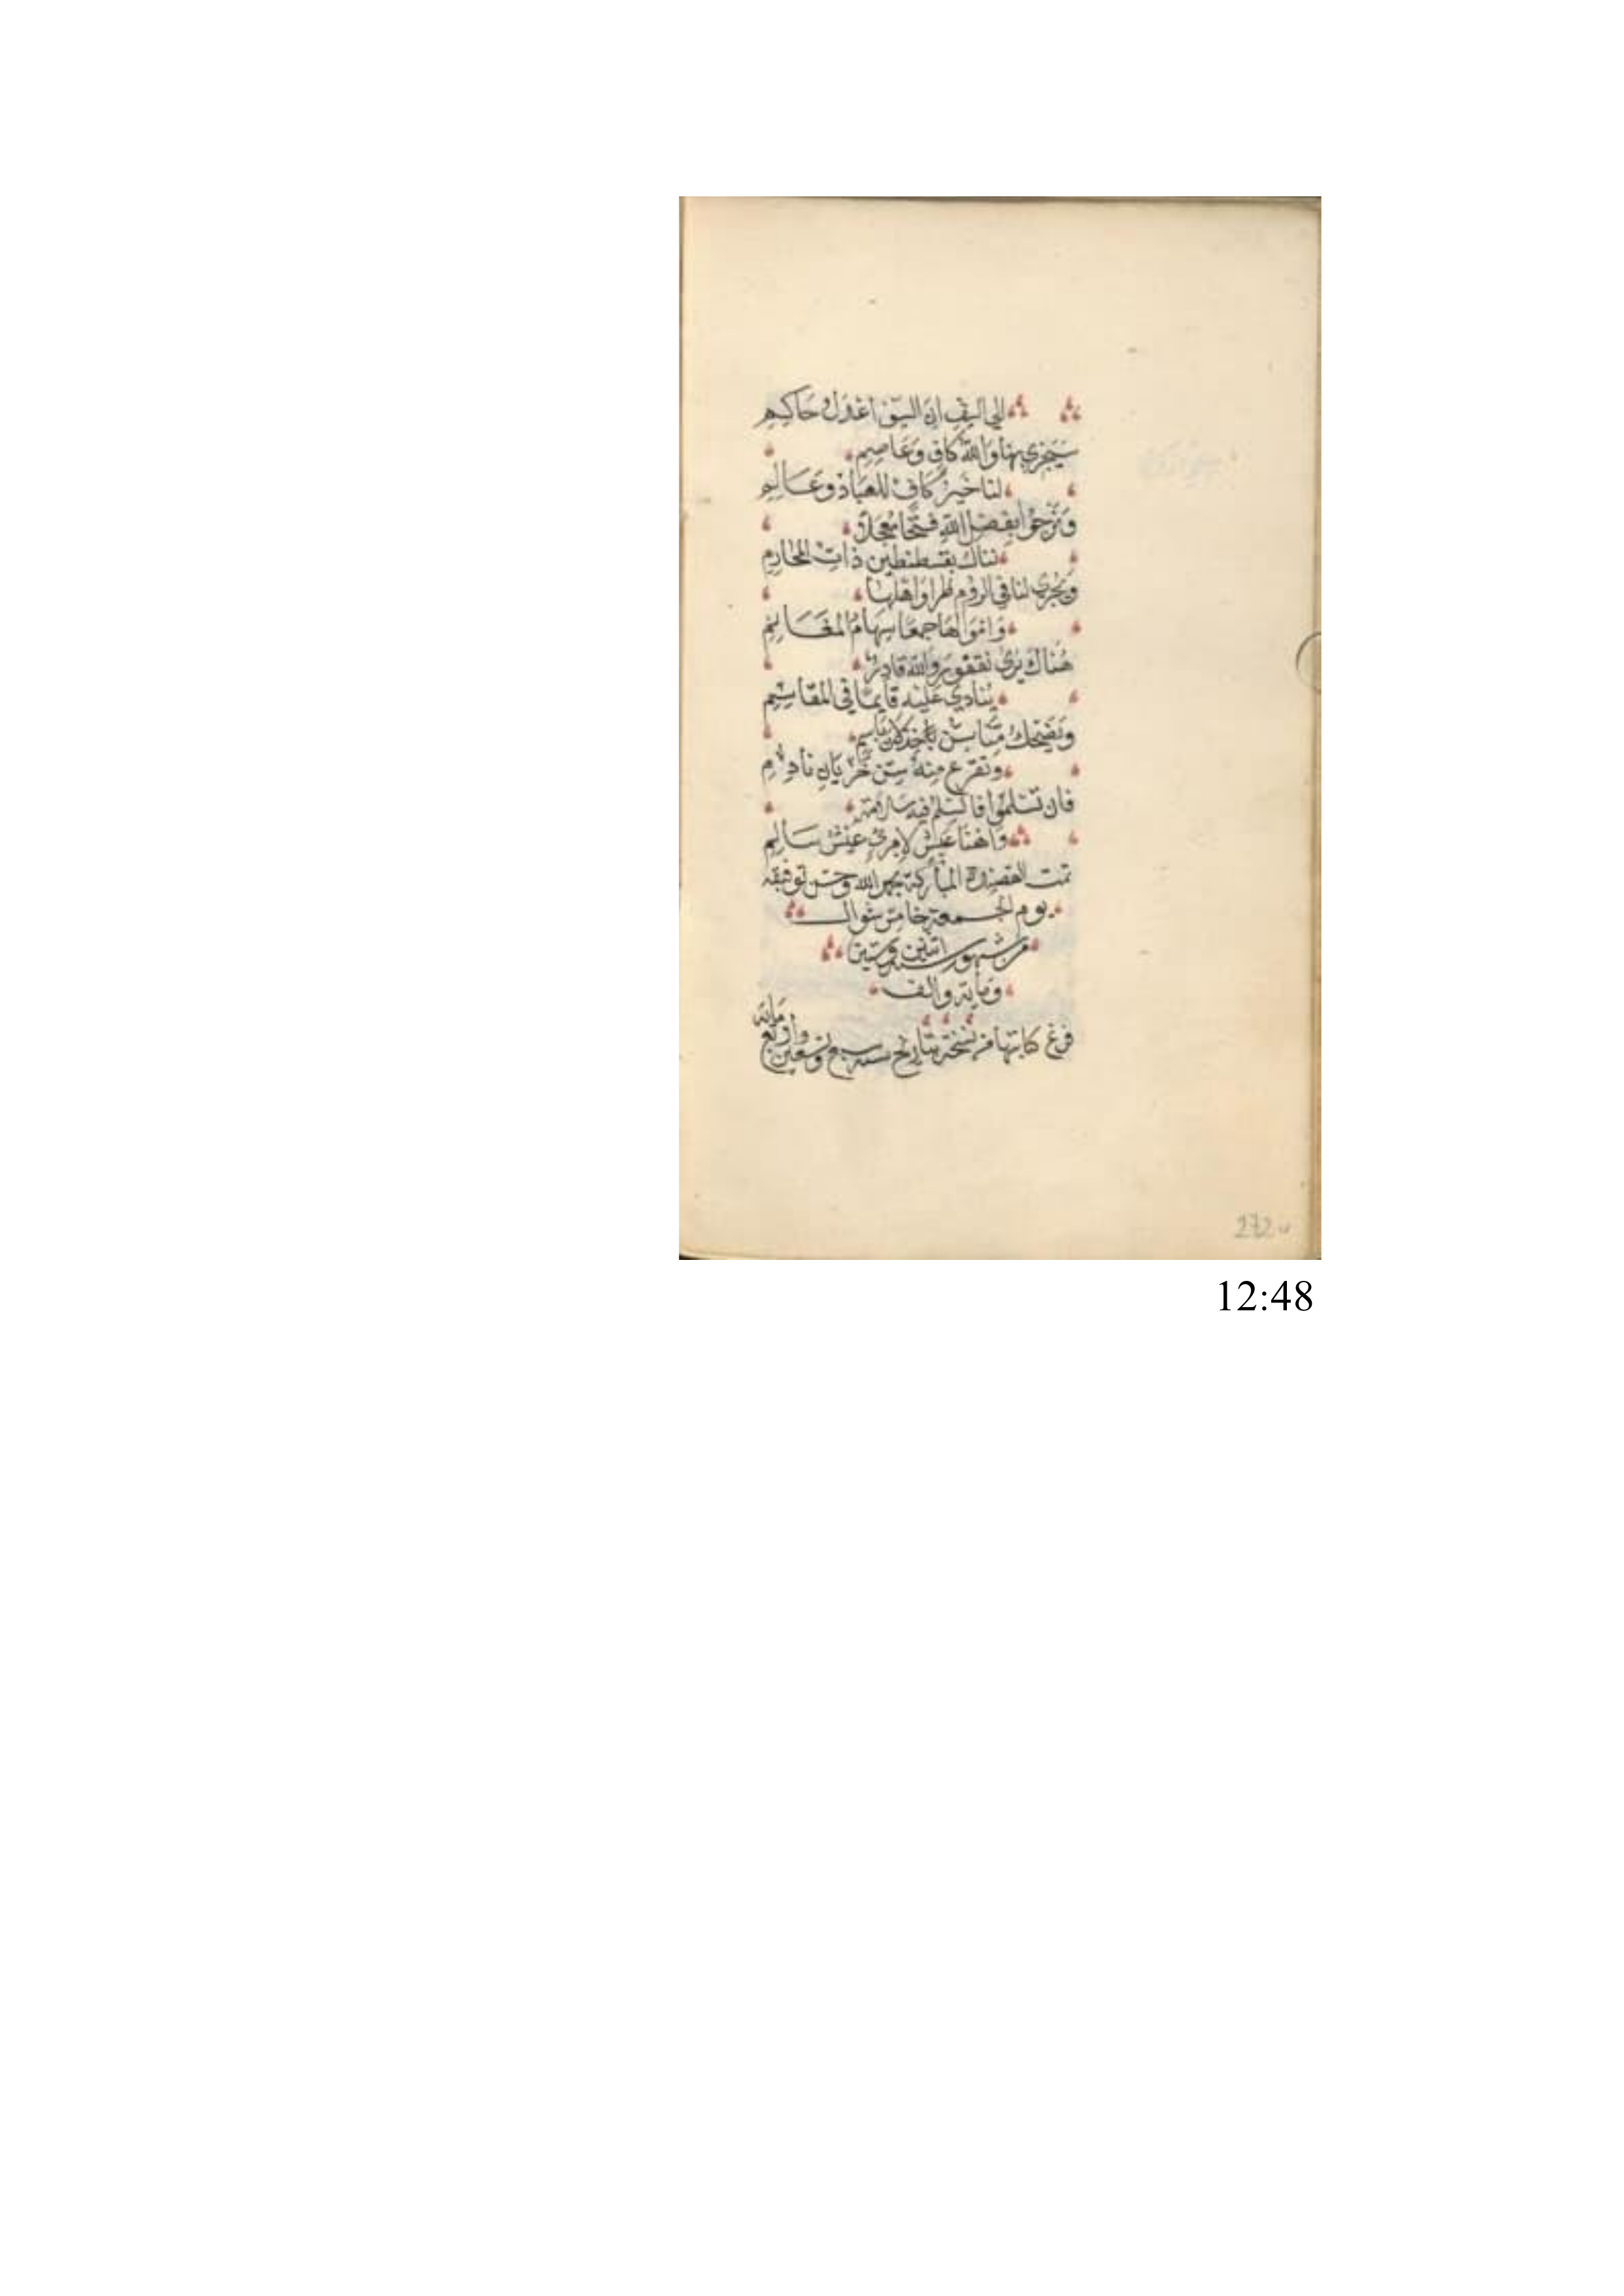 الي السيف ان السيف اعدل حاكم
سيجزي بها والله كاف وعاصم
لنا خير كاف للعباد وعالم
ونرجوا بفضل الله فتحا معجلا
نناك بقسطنطين ذات المحارم
ويجري لنا في الروم طرا واهلها
واموالها جمعا سهام المغانم
هناك يرى نقفور والله قادر
ينادي عليه قايما في المقاسم
ونضحك منا سن
ونقرع منه سن خزيان نادم
فان تسلموا فالسلم فيه سلامة
واهنا عيش لامرئ عيش سالم
تمت القصيدة المباركة بحمد الله وحسن توفيقه
يوم الجمعة خامس شوال
من شهور سنة اثنين وستين
وماية والف
فرغ كاتبها من نسخة بتاريخ سنة سبع وتسعين واربع مائة
272v
12:48